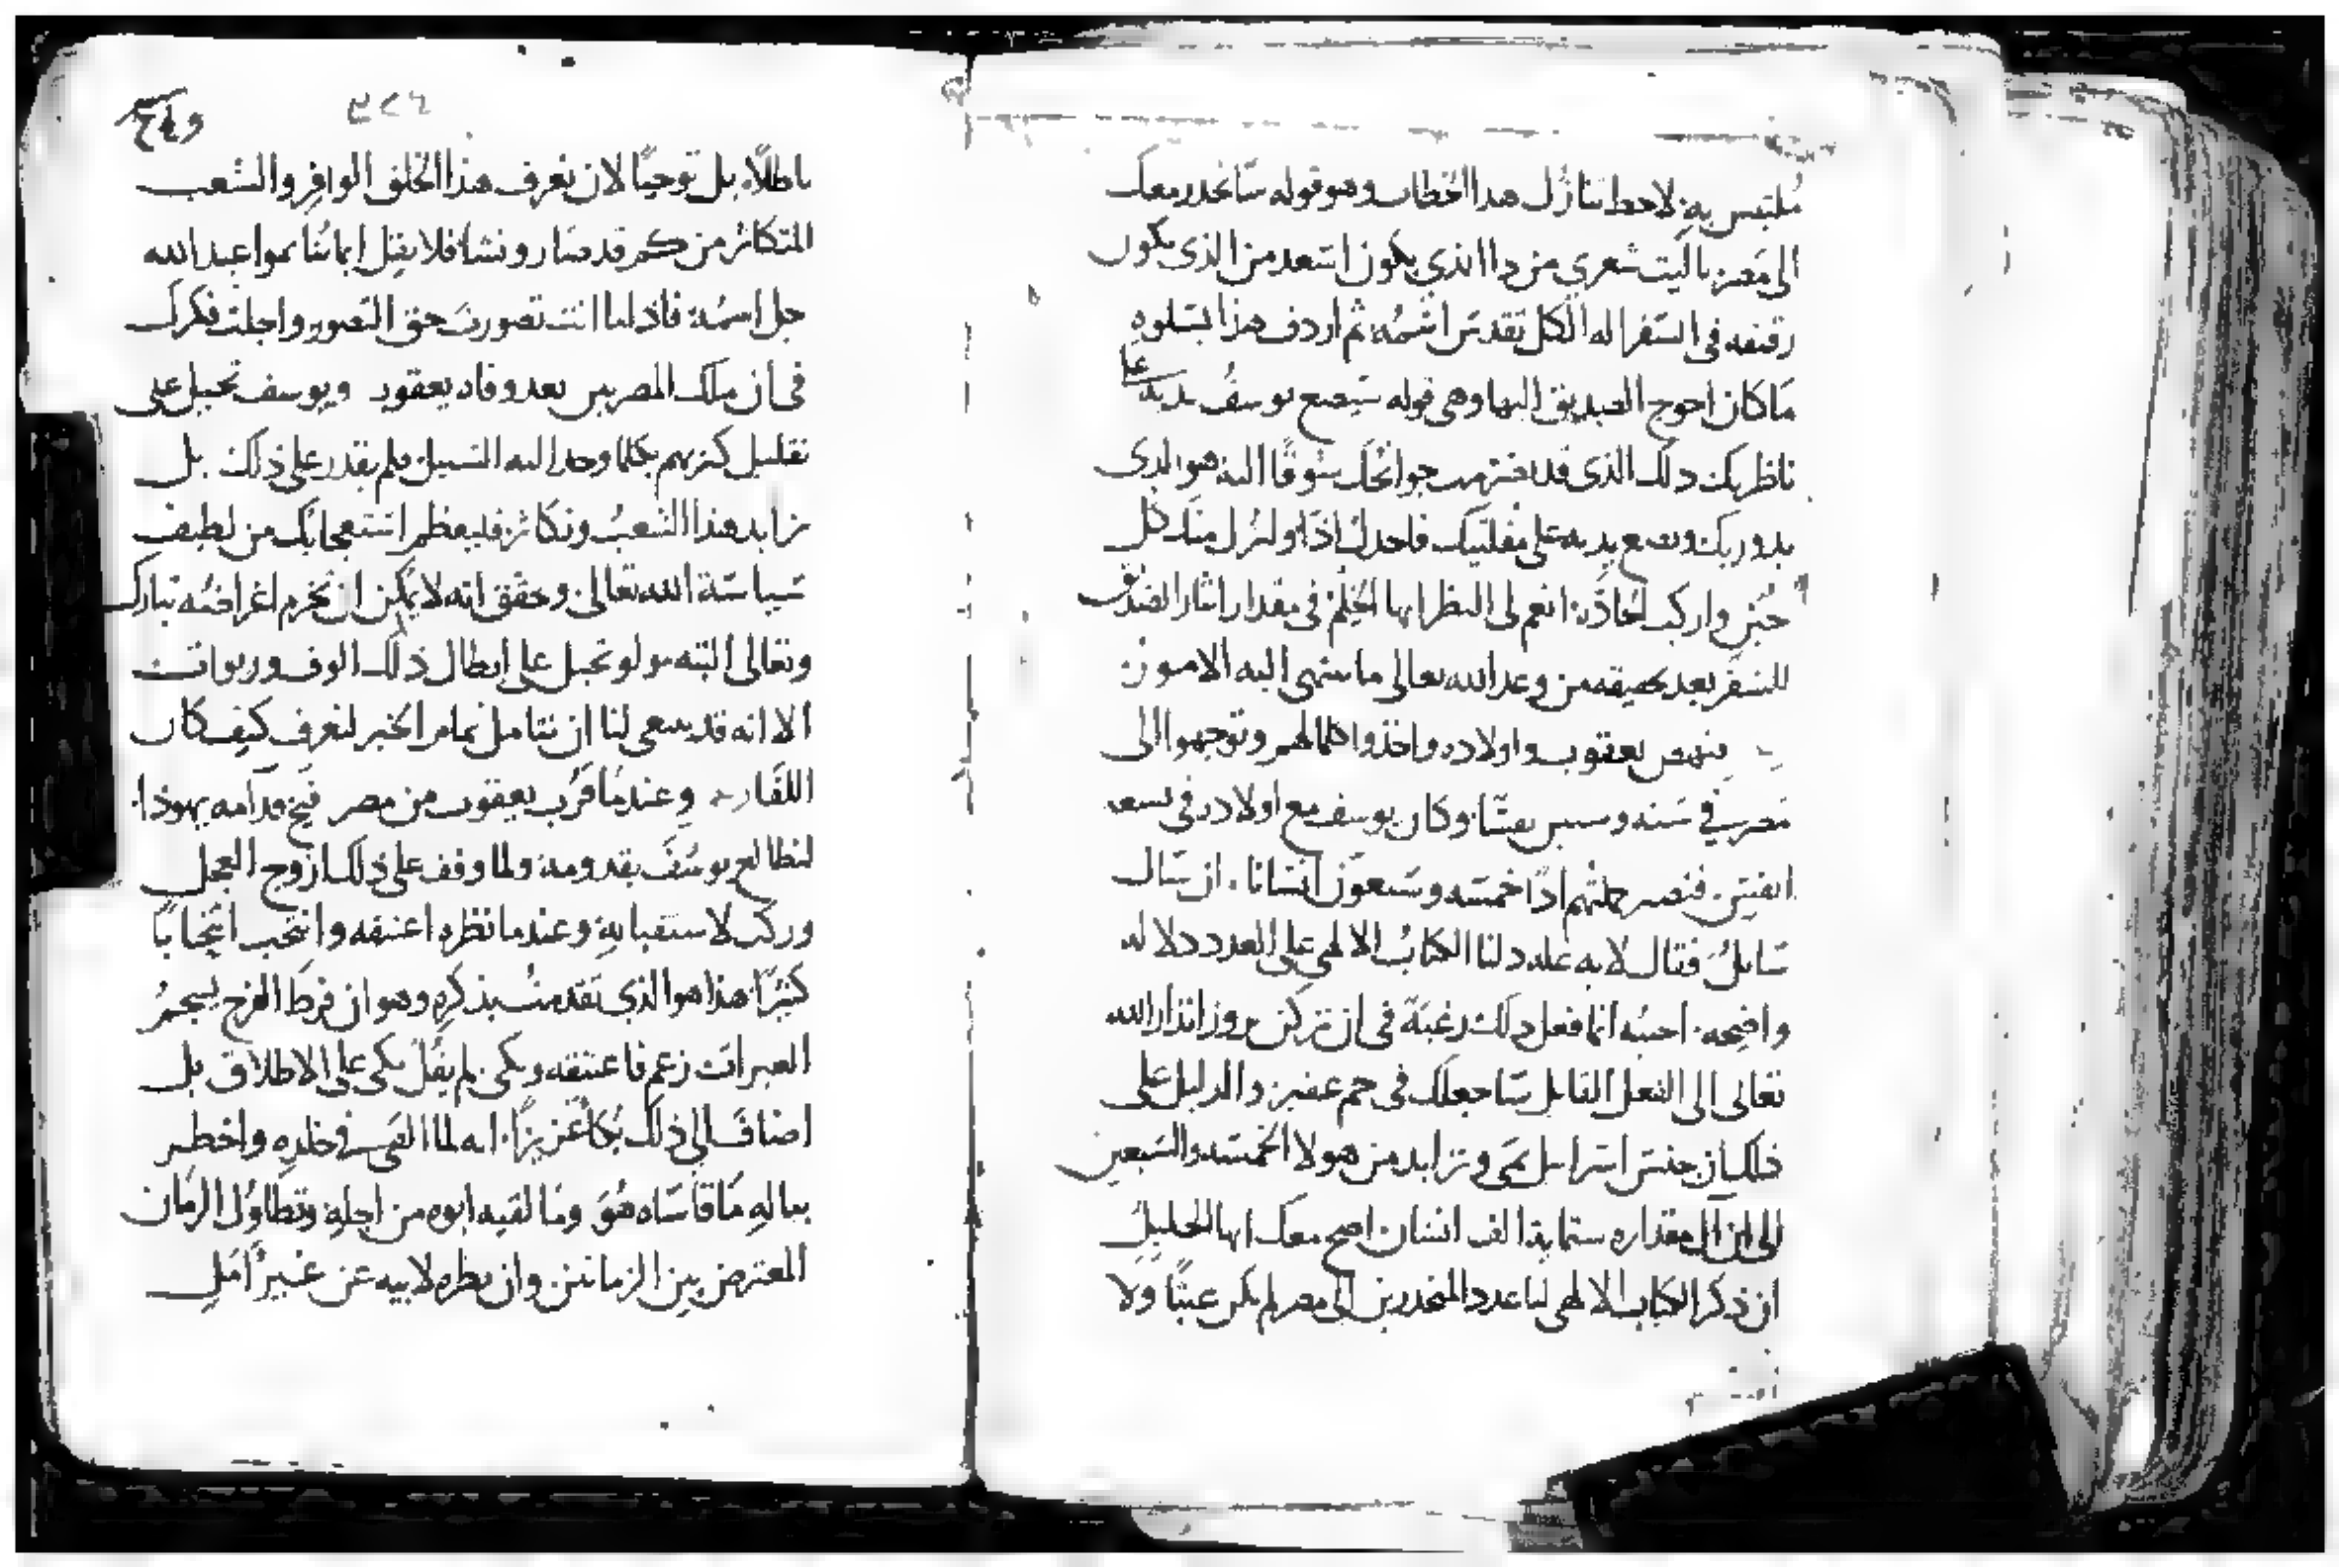 ملتبس به لاحظ تنازل هدا الخطاب وهو قوله سانحدر معك
الى مصر يا ليت شعري من دا الذي يكون اسعد من الذي يكون
رفيقه في السفر اله الكل تقدس اسمه ثم اردف هذا بسلوه
ما كان احوج الصديق اليها وهى قوله سيضع يوسف يديه على
ناظريك دلك الذي قد جوانحك شوقًا اليه هو الدى
يدوريك ويضع يديه على مقلتيك فاجدل اذًا ولنزل منك كل
حزن واركب انعم لى النظر ايها الحليم في مقدار ايثار الصديق
للسفر بعد تحقيقه من وعد الله تعالى ما ستنتهى اليه الامور
فنهض يعقوب واولاده واخذوا وتوجهوا الى
مصر في سته وستين نفسًا وكان يوسف مع اولاده في تسعه
انفس فتصير جملتهم ادًا خمسه وسبعون انسانا ان سال
سايلٌ فقال لايه عله دلنا الكتاب الالهي على العدد دلاله
واضحه احبته انما فعل دلك رغبة في ان تركن بروز انذار الله
تعالى الى الفعل القايل ساجعلك في جم غفير والدليل على
ذلك ان جنس اسراييل نمى وتزايد من هولا الخمسه والسبعين
الى ان آل مقداره ستماية الف انسان اصح معك ايها الخليل
ان ذكر الكتاب الالهى لنا عدد المنحدرين الى مصر لم يكن عبثًا ولا
٣٢٦
باطلًا بل توخيًا لان نعرف هذا الخلق الوافر والشعب
المتكاثر من كم قد صار ونشا فلا يقل ايماننا بمواعيد الله
جل اسمه فاذ لما انت تصورت حق التصور واجلت فكرك
في ان ملك المصريين بعد وفاه يعقوب ويوسف تحيل على
تقليل كثرتهم بكلما وجد اليه السبيل فلم يقدر على ذلك بل
تزايد هذا الشعب وتكاثر فليعظم استعجابك من لطيف
سياسة الله تعالى وحقق انه لا يمكن ان تخرم اغراضه تبارك
وتعالى البته ولو تحيل على ابطال ذلك الوف وربوات
الا انه قد ينبغى لنا ان نتامل تمام الخبر لنعرف كيف كان
اللقا وعندما قرب يعقوب من مصر قدامه يهوذا
ليطالع يوسف بقدومه ولما وقف على ذلك ازوج العجل
وركب لاستقباله وعندما نظره اعتنقه وانتحب انتحابًا
كثيرًا هذا هوا الذي تقدمت بذكره وهو ان فرط الفرح يسجم
العبرات زعم فاعتنقه وبكى لم يقل بكى على الاطلاق بل
اضاف الى ذلك بكاً غزيرًا انه لما القى في خلده واخطر
بباله ما قاساه هو وما لقيه ابوه من اجله وتطاول الزمان
المعترض بين الزمانين وان نظره لابيه عن غير امل